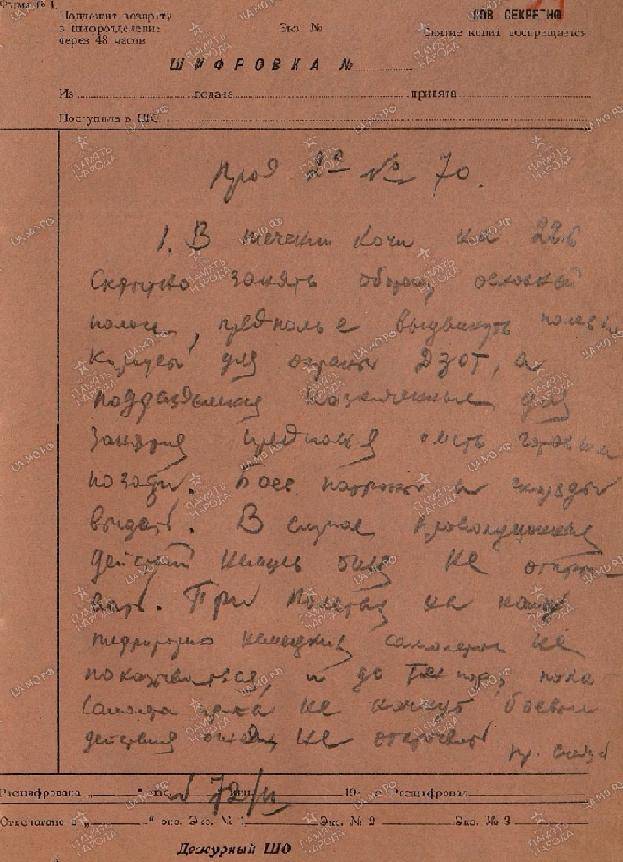 Форма № 1
Подлежит возврату
в шифротделение
через 48 часов
Экз. №
СОВ. СЕКРЕТНО
Снятие копий воспрещается
ШИФРОВКА №
Из подана принята
Поступила в ШО
№ 70.
1. В течении ночи на 22.6
скрытно занять оборону основной
полосы, предполье выдвинуть полевые
караулы для охраны ДЗОТ, а
подразделения назначенные для
занятия предполья иметь готовыми
позади. Боевые патроны и снаряды
выдать. В случае провокационных
действий немцев огня не откры-
вать. При полетах на нашу
территорию немецких самолетов не
показываться, и до тех пор, пока
самолеты врага не начнут боевых
действий огня не открывать
72/п
Расшифрована 194 г. Расшифровал
Отпечатано в „ “ экз. Экз. № 1 Экз. № 2 Экз. № 3
Дежурный ШО
ПАМЯТЬ НАРОДА
ЦАМО.РФ